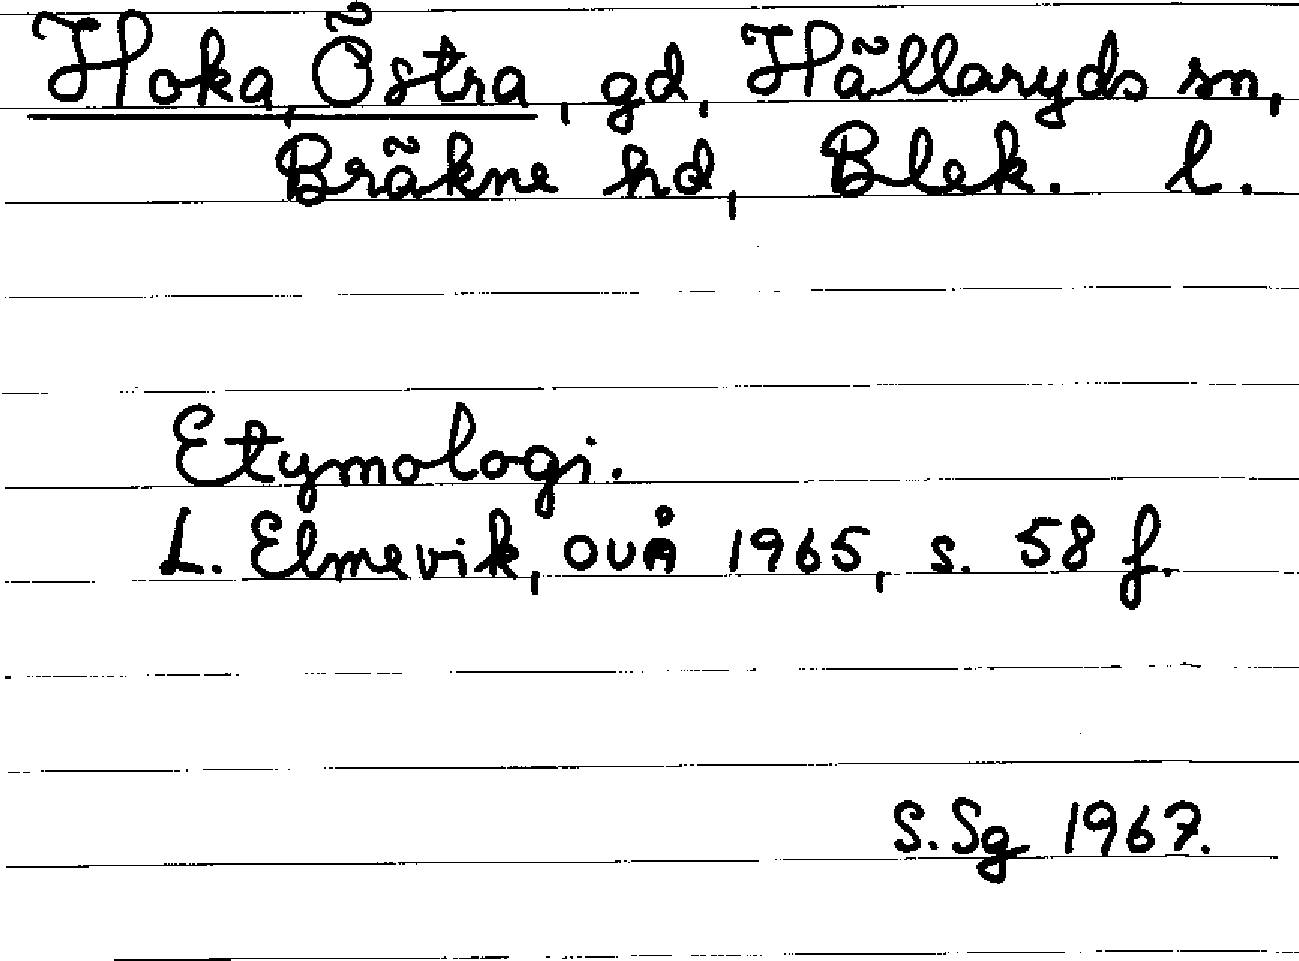 Hoka, Östra, gd, Hällaryds sn,
Bräkne hd, Blek. l.
Etymologi.
L. Elmevik, OUÅ 1965, s. 58 f.
S. Sg 1967.